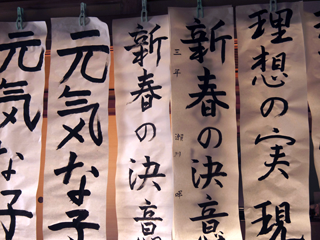 理想の実現
新春の決意
新春の決意
元気な子
元気な子